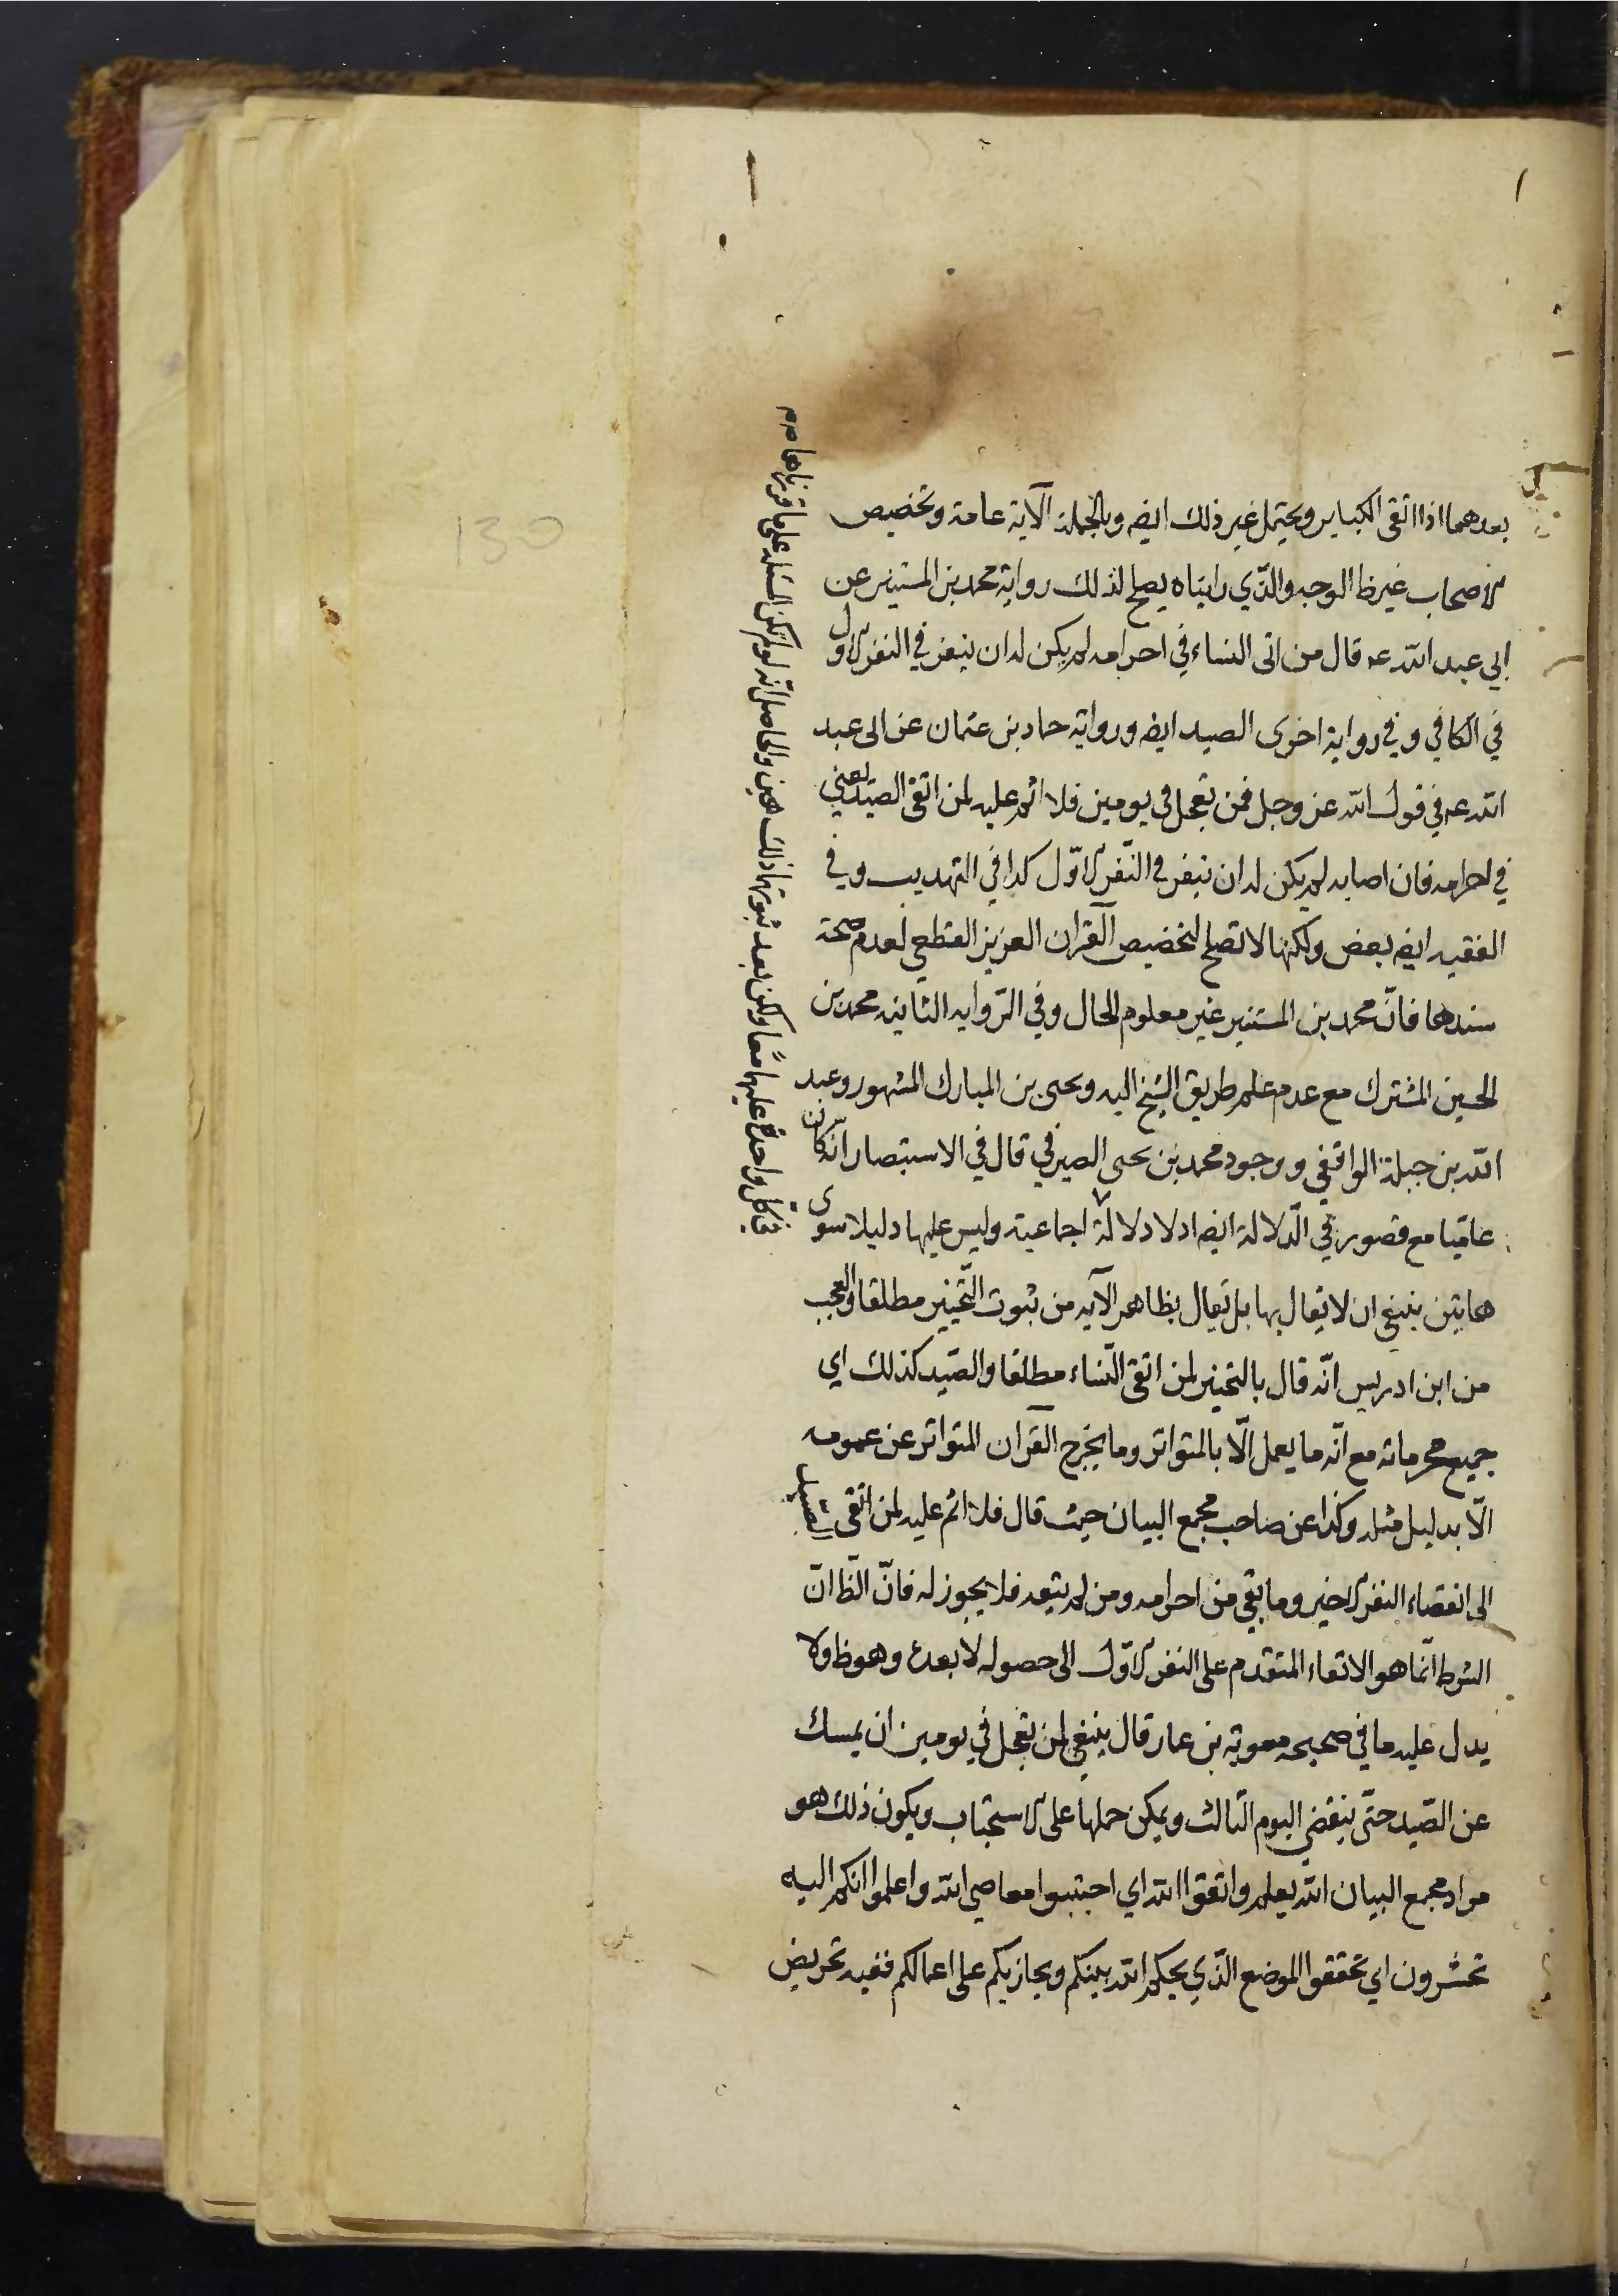 بعدهما اذا اتقى الكباير ويحتمل غير ذلك ايضه وبالجملة الآية عامة وتخصيص
الاصحاب غير ظ الوجه والذّي رايناه يصلح لذلك رواية محمد بن المستنير عن
ابي عبد الله عه قال من اتى النساء في احرامه لم يكن له ان ينفر في النفر الاول
في الكافي و في رواية اخرى الصيد ايضه ورواية حماد بن عثمان عن ابى عبد
الله عه في قول الله عز وجل فمن تعجل في يومين فلا اثم عليه لمن اتقى الصّيد يعني
في احرامه فان اصابه لم يكن له ان ينفر في النّفر الاوّل كذا في التهذيب وفي
الفقيه ايضه بعض ولكنها لا تصلح لتخصيص القرآن العزيز القطعي لعدم صحة
سندها فانّ محمد بن المستنير غير معلوم الحال وفي الرّواية الثانيه محمد بن
الحسين المشترك مع عدم علم طريق الشيخ اليه ويحيى بن المبارك المشهور وعبد
الله بن جبلة الواقفي ووجود محمد بن يحيى الصيرفي قال في الاستبصار انّه كان
عاميّا مع قصور في الدّلالة ايضه اذ لا دلالة اجماعية وليس عليها دليلا سوى
هاتين ينبغي ان لا يقال بها بل يقال بظاهر الآيه من ثبوت التّخيير مطلقا والعجب
من ابن ادريس انّه قال بالتخيير لمن اتقى النّساء مطلقا والصّيد كذلك اي
جميع محرماته مع انّه ما يعمل الّا بالمتواتر وما يخرج القرآن المتواتر عن عمومه
الّا بدليل مثله وكذا عن صاحب مجمع البيان حيث قال فلا اثم عليه لمن اتقى الصّيد
الى انقضاء النفر الاخير وما بقي من احرامه ومن لم يتقه فلا يجوز له فانّ الظ انّ
الشرط انّما هو الاتقاء المتقدم على النفر الاوّل الى حصوله لا بعده وهو ظ ولا
يدل عليه ما في صحيحه معوية بن عمار قال ينبغي لمن تعجل في يومين ان يمسك
عن الصّيد حتّى ينقضي اليوم الثالث ويمكن حملها على الاستحباب ويكون ذلك هو
مراد مجمع البيان الله يعلم واتقوا الله اي اجتنبوا معاصي الله واعلموا انكم اليه
تحشرون اي تحققوا الموضع الذّي يحكم الله بينكم ويجازيكم على اعمالكم ففيه تحريض
والحاصل انه لو لم تكن المسئله على ما قررناها
ولكن بعد ثبوتها ذلك هين
في كل واحدة عليها معًا
130